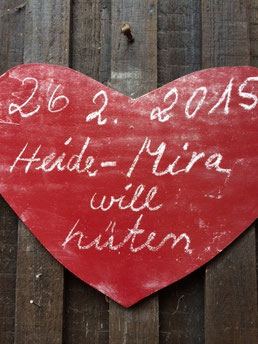 26 2. 2015
Heide-Mira
will
hüten